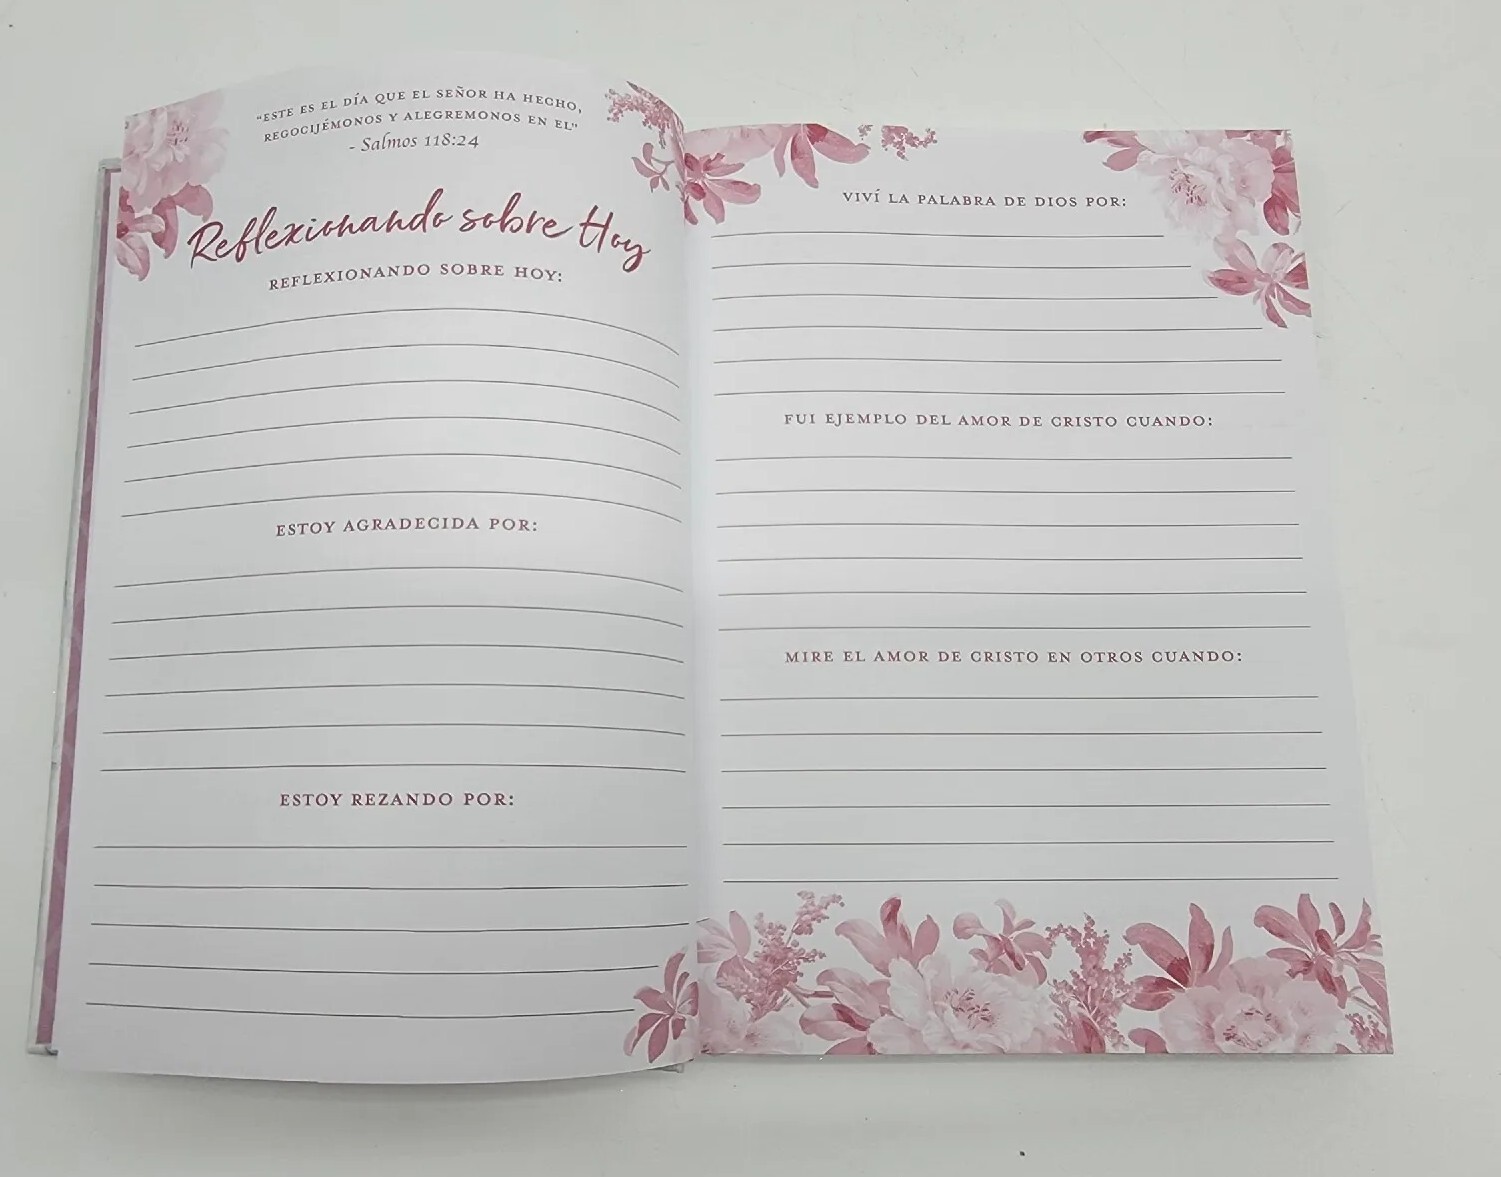 “ESTE ES EL DÍA QUE EL SEÑOR HA HECHO,
REGOCIJÉMONOS Y ALEGREMONOS EN EL”
- Salmos 118:24
Reflexionando sobre Hoy
REFLEXIONANDO SOBRE HOY:
ESTOY AGRADECIDA POR:
ESTOY REZANDO POR:
VIVÍ LA PALABRA DE DIOS POR:
FUI EJEMPLO DEL AMOR DE CRISTO CUANDO:
MIRE EL AMOR DE CRISTO EN OTROS CUANDO: